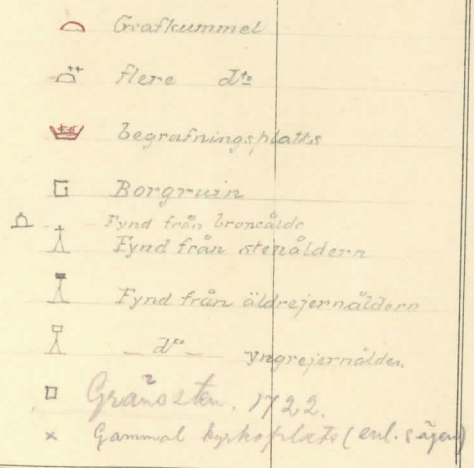 Grafkummel
flere dto
begrafningsplatts
Borgruin
Fynd från broncålde
Fynd från stenåldern
Fynd från äldrejernåldern
_ do _ yngrejernålder.
Gränssten. 1722.
Gammal kyrkoplats (enl. sägen)